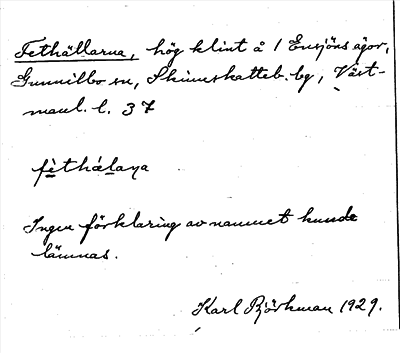 Fethällarna, hög klint å 1 Ensjöns ägor,
Gunnilbo sn, Skinnskatteb. bg, Väst-
manl. l. 37
fèthálana
Ingen förklaring av namnet kunde
lämnas.
Karl Björkman 1929.